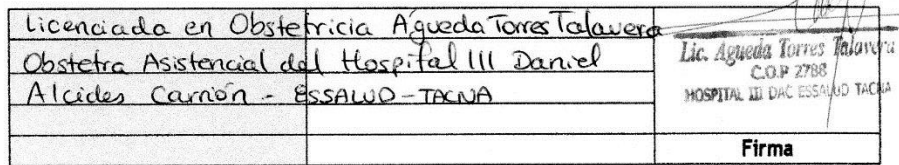 Licenciada en Obstetricia Águeda Torres Talavera
Obstetra Asistencial del Hospital III Daniel
Alcides Carrión - ESSALUD - TACNA
Lic. Agueda Torres Talavera
C.O.P 2788
HOSPITAL III DAC ESSALUD TACNA
Firma